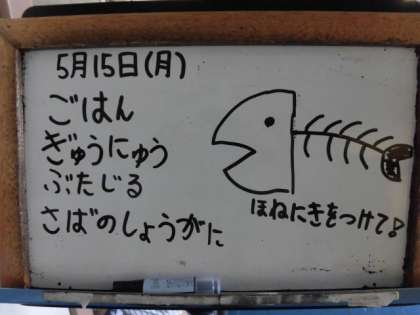 5月15日(月)
ごはん
ぎゅうにゅう
ぶたじる
さばのしょうがに
ほねにきをつけて!